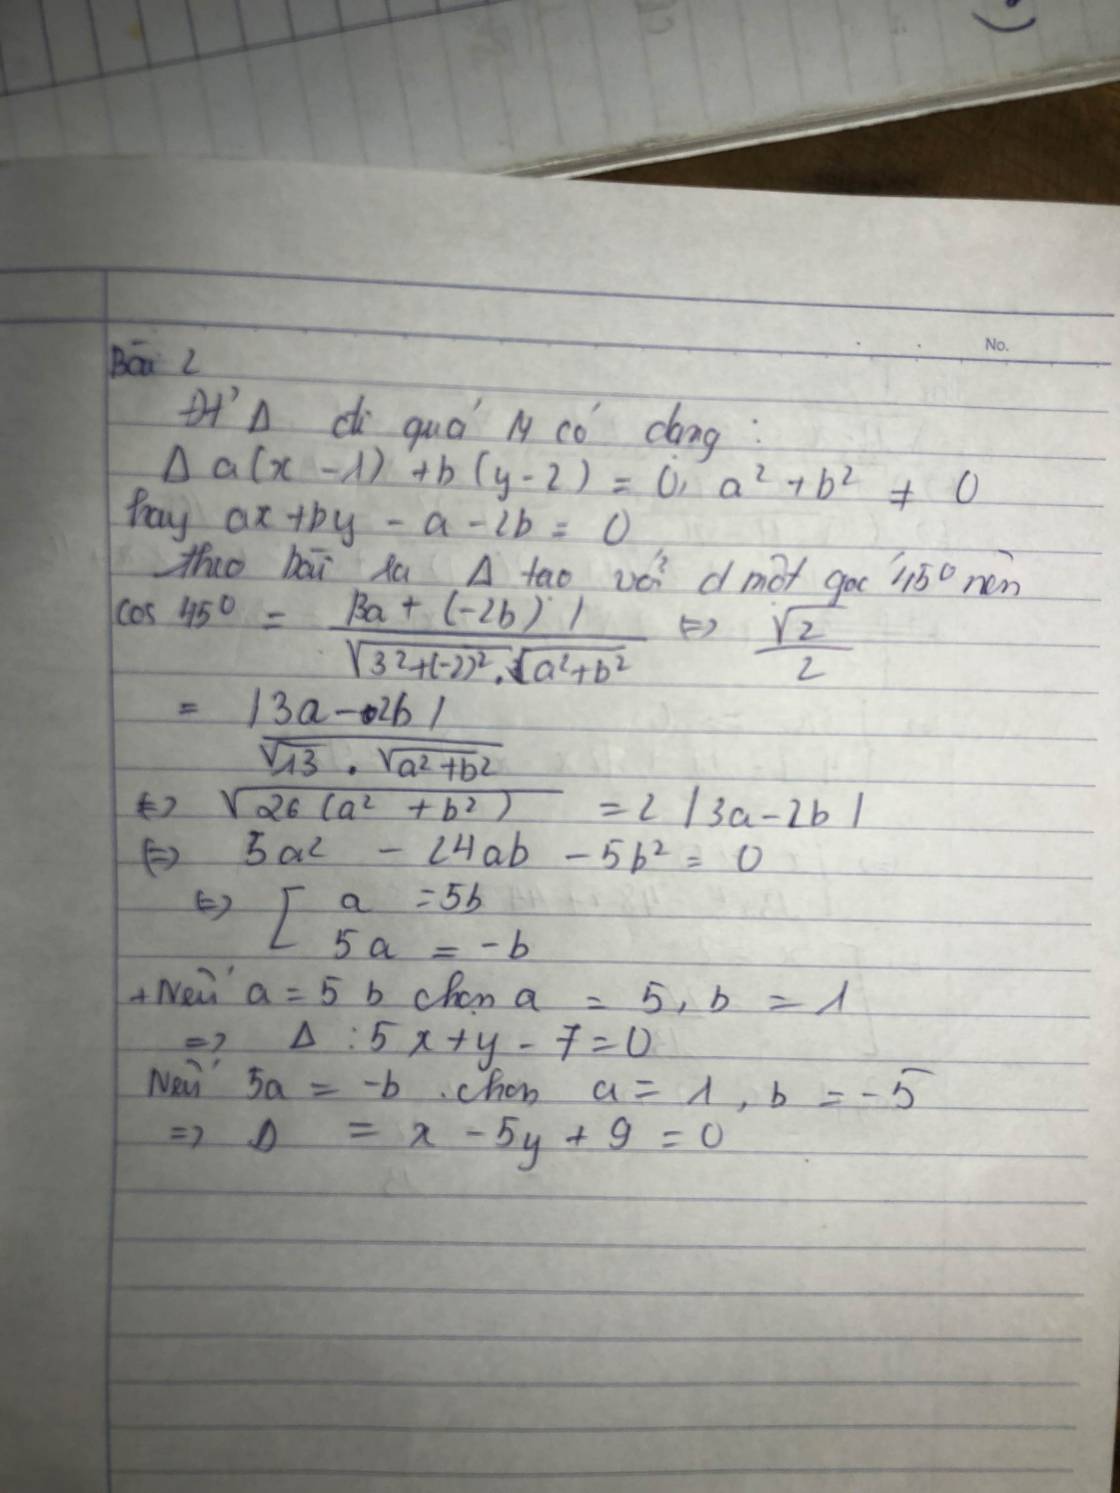 No.
Bài 2
Đt' Δ đi quá M có dạng :
Δ a(x - 1) + b (y - 2) = 0, a² + b² ≠ 0
hay ax + by - a - 2b = 0
theo bài ra Δ tạo với d một góc 45⁰ nên
cos 45⁰ = |3a + (-2b)| / √3² + (-2)² . √a² + b² <=> √2 / 2
= |3a - 2b| / √13 . √a² + b²
<=> √26 (a² + b²) = 2 |3a - 2b|
<=> 5a² - 24ab - 5b² = 0
<=> [ a = 5b
5a = -b
+ Nếu a = 5 b chọn a = 5, b = 1
=> Δ : 5x + y - 7 = 0
Nếu 5a = -b . chọn a = 1, b = -5
=> Δ = x - 5y + 9 = 0